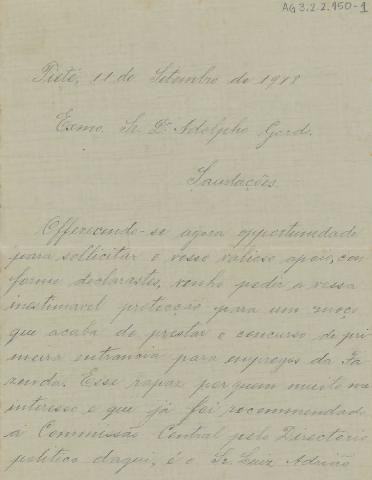 AG3.2.2.950-1
Tieté, 11 de Setembro de 1918
Exmo. Sr. Dr. Adolpho Gordo.
Saudações.
Offerecendo-se agora opportunidade
para sollicitar o vosso valioso apoio, con
forme declarastes, venho pedir a vossa
inestimavel protecção para um moço
que acaba de prestar o concurso de pri
meira entrancia para empregos da Fa
zenda. Esse rapaz por quem muito me
interesso e que já foi recommendado
á Commissão Central pelo Directorio
politico daqui, é o Sr. Luiz Adrião